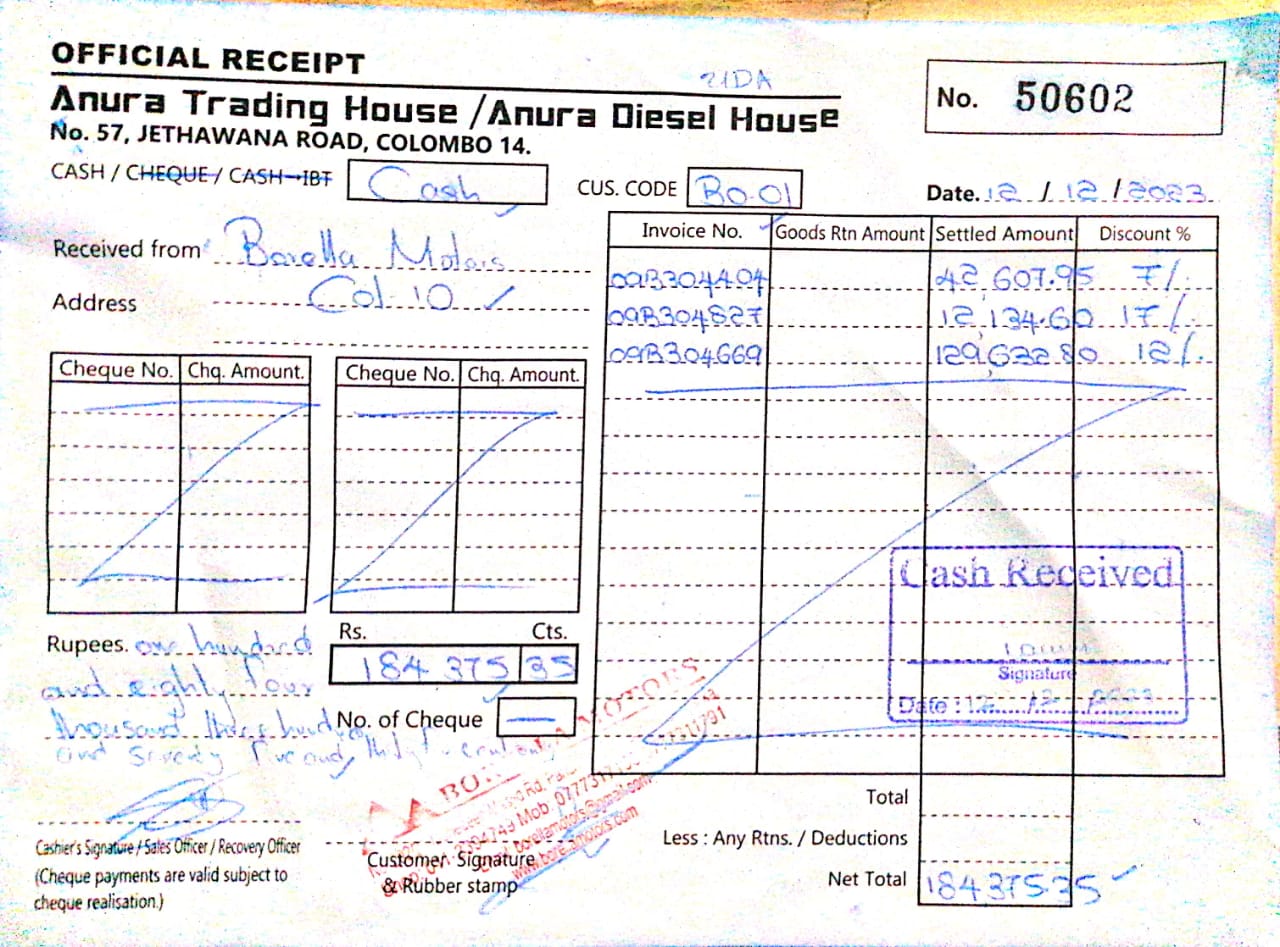 OFFICIAL RECEIPT
Anura Trading House / Anura Diesel House
No. 57, JETHAWANA ROAD, COLOMBO 14.
No. 50602
CASH / CHEQUE / CASH→IBT Cash
CUS. CODE BO.01
Date. 12 / 12 / 2023
Received from Borella Motors
Address Col-10
Invoice No. Goods Rtn Amount Settled Amount Discount %
09B304404 42,607.95 7/.
09B304827 12,134.60 17/.
09B304669 129,632.80 12/.
Cheque No. Chq. Amount. Cheque No. Chq. Amount.
Cash Received
Signature
Date : 12 12 2023
Rupees. one hundred
and eighty four
thousand three hund
and seventy five and
Rs. Cts.
184 375 35
No. of Cheque —
MOTORS
borellamotors@gmail.com
Total
Less : Any Rtns. / Deductions
Net Total 184375 35
Cashier's Signature / Sales Officer / Recovery Officer
(Cheque payments are valid subject to
cheque realisation.)
Customer Signature
& Rubber stamp